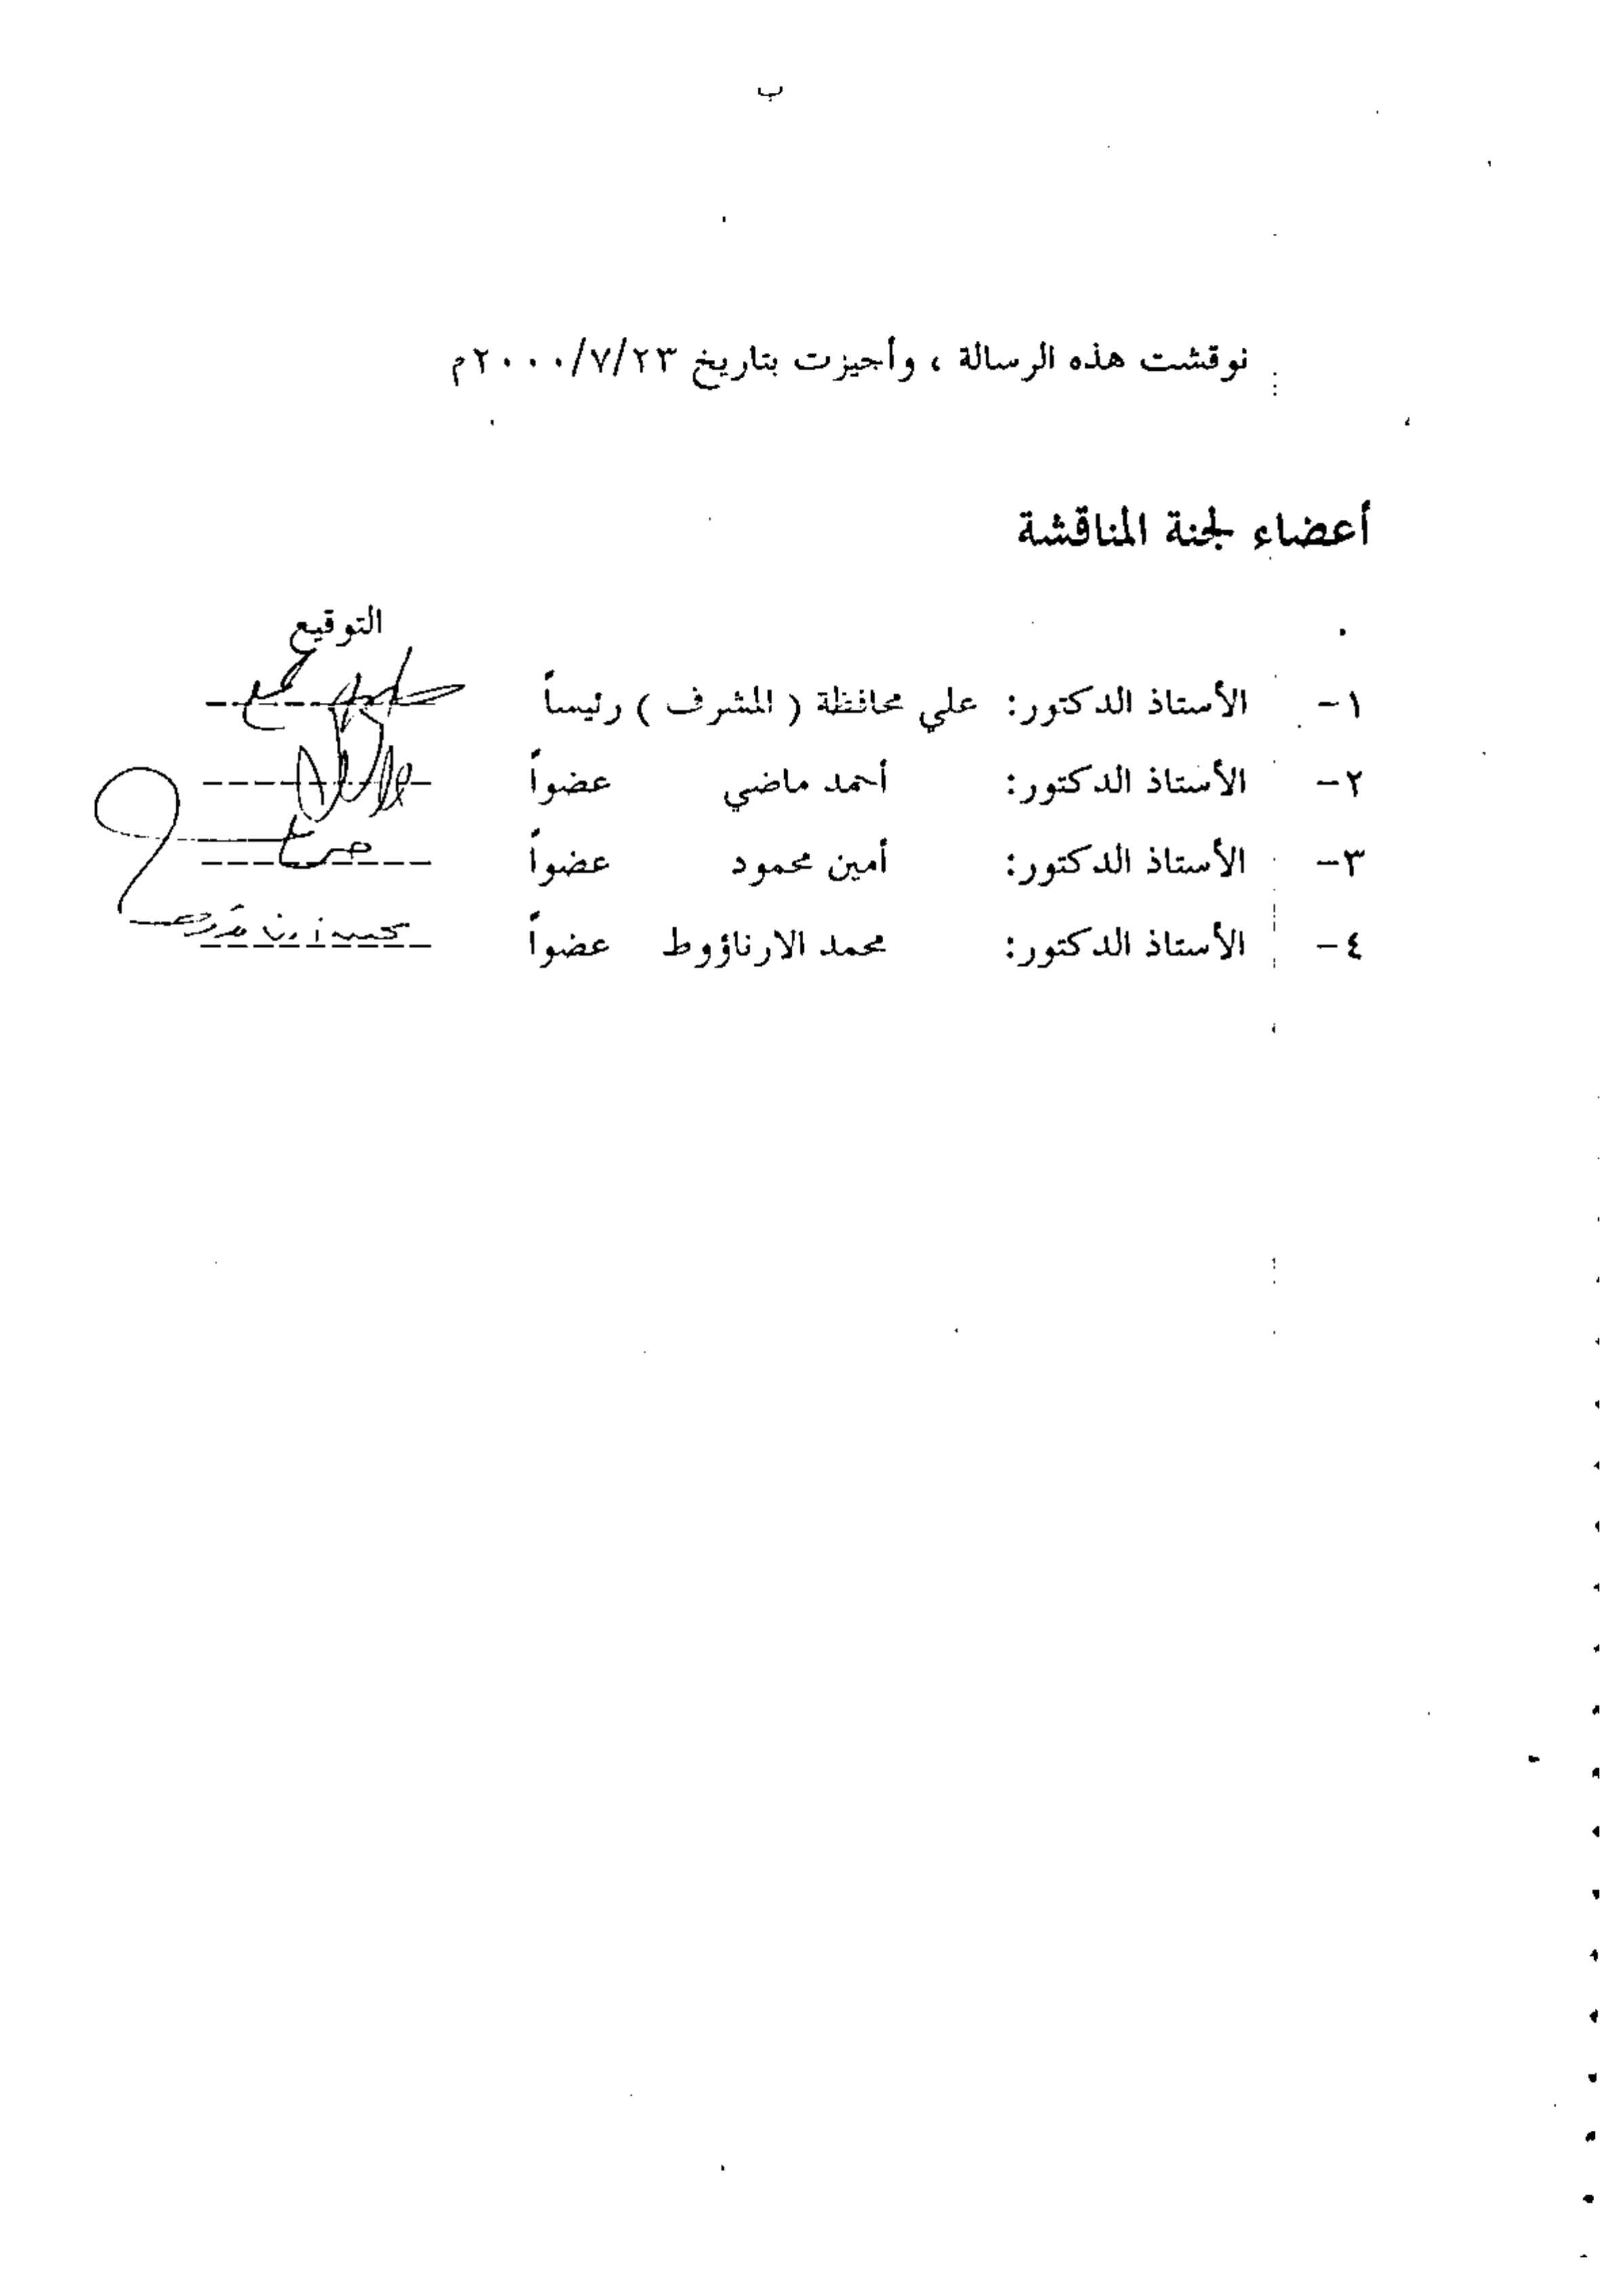 ب
نوقشت هذه الرسالة ، وأجيزت بتاريخ ٢٠٠٠/٧/٢٣م
أعضاء لجنة المناقشة
التوقيع
١- الأستاذ الدكتور: علي محافظة ( المشرف ) رئيساً
٢- الأستاذ الدكتور: أحمد ماضي عضواً
٣- الأستاذ الدكتور: أمين محمود عضواً
٤- الأستاذ الدكتور: محمد الارناؤوط عضواً